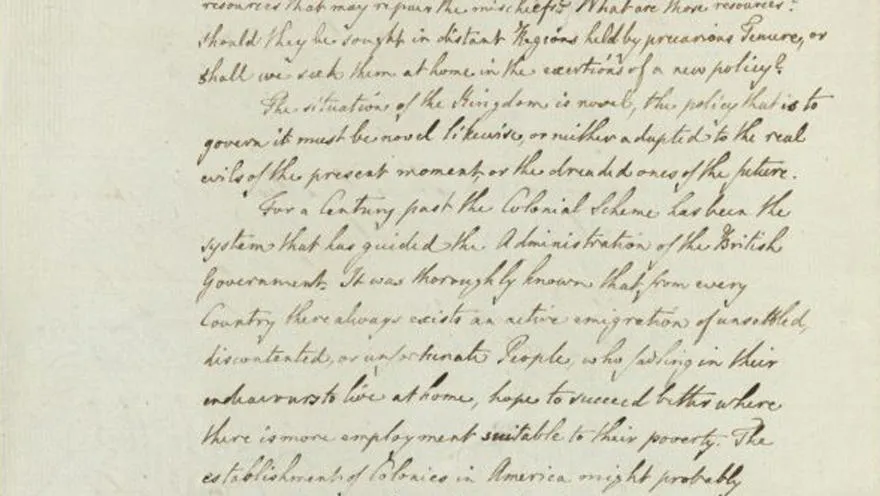 resources that may repair the mischiefs? What are those resources?
should they be sought in distant Regions held by precarious Tenure, or
shall we seek them at home in the exertions of a new policy?
The situation of the Kingdom is novel, the policy that is to
govern it must be novel likewise, or neither adapted to the real
evils of the present moment, or the dreaded ones of the future.
For a Century past the Colonial Scheme has been the
system that has guided the Administration of the British
Government. It was thoroughly known that from every
Country there always exists an active emigration of unsettled,
discontented, or unfortunate People, who failing in their
endeavours to live at home, hope to succeed better where
there is more employment suitable to their poverty. The
establishment of Colonies in America might probably